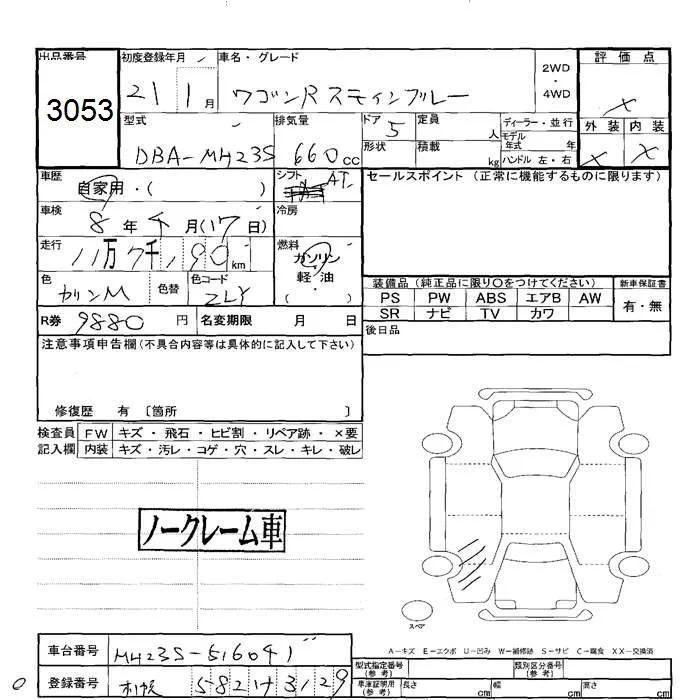 出品番号
3053
初度登録年月
21 1月
車名・グレード
ワゴンR スティングレー
2WD・4WD
評価点
X
外装 内装
X X
型式
DBA-MH23S
排気量
660cc
ドア
5
定員
人
形状
積載
kg
ディーラー・並行
モデル年式 年
ハンドル 左・右
車歴
自家用・( )
シフト
AT
セールスポイント (正常に機能するものに限ります)
車検
8年 月(17日)
冷房
走行
11万7千190km
燃料
ガソリン
軽・油
( ・ )
色
カリンM
色替
色コード
ZLY
装備品 (純正品に限り○をつけてください)
新車保証書
PS PW ABS エアB AW
有・無
SR ナビ TV カワ
R券 9880円
名変期限 月 日
後日品
注意事項申告欄(不具合内容等は具体的に記入して下さい)
修復歴 有 〔箇所 〕
検査員記入欄
FW キズ・飛石・ヒビ割・リペア跡・×要
内装 キズ・汚レ・コゲ・穴・スレ・キレ・破レ
ノークレーム車
スペア
A-キズ E-エクボ U-凹み W-補修跡 S-サビ C-腐食 XX-交換済
車台番号
MH23S-516041
登録番号
582 3129
型式指定番号(参考)
類別区分番号(参考)
車庫証明用(参考)
長さ cm
幅 cm
高さ cm